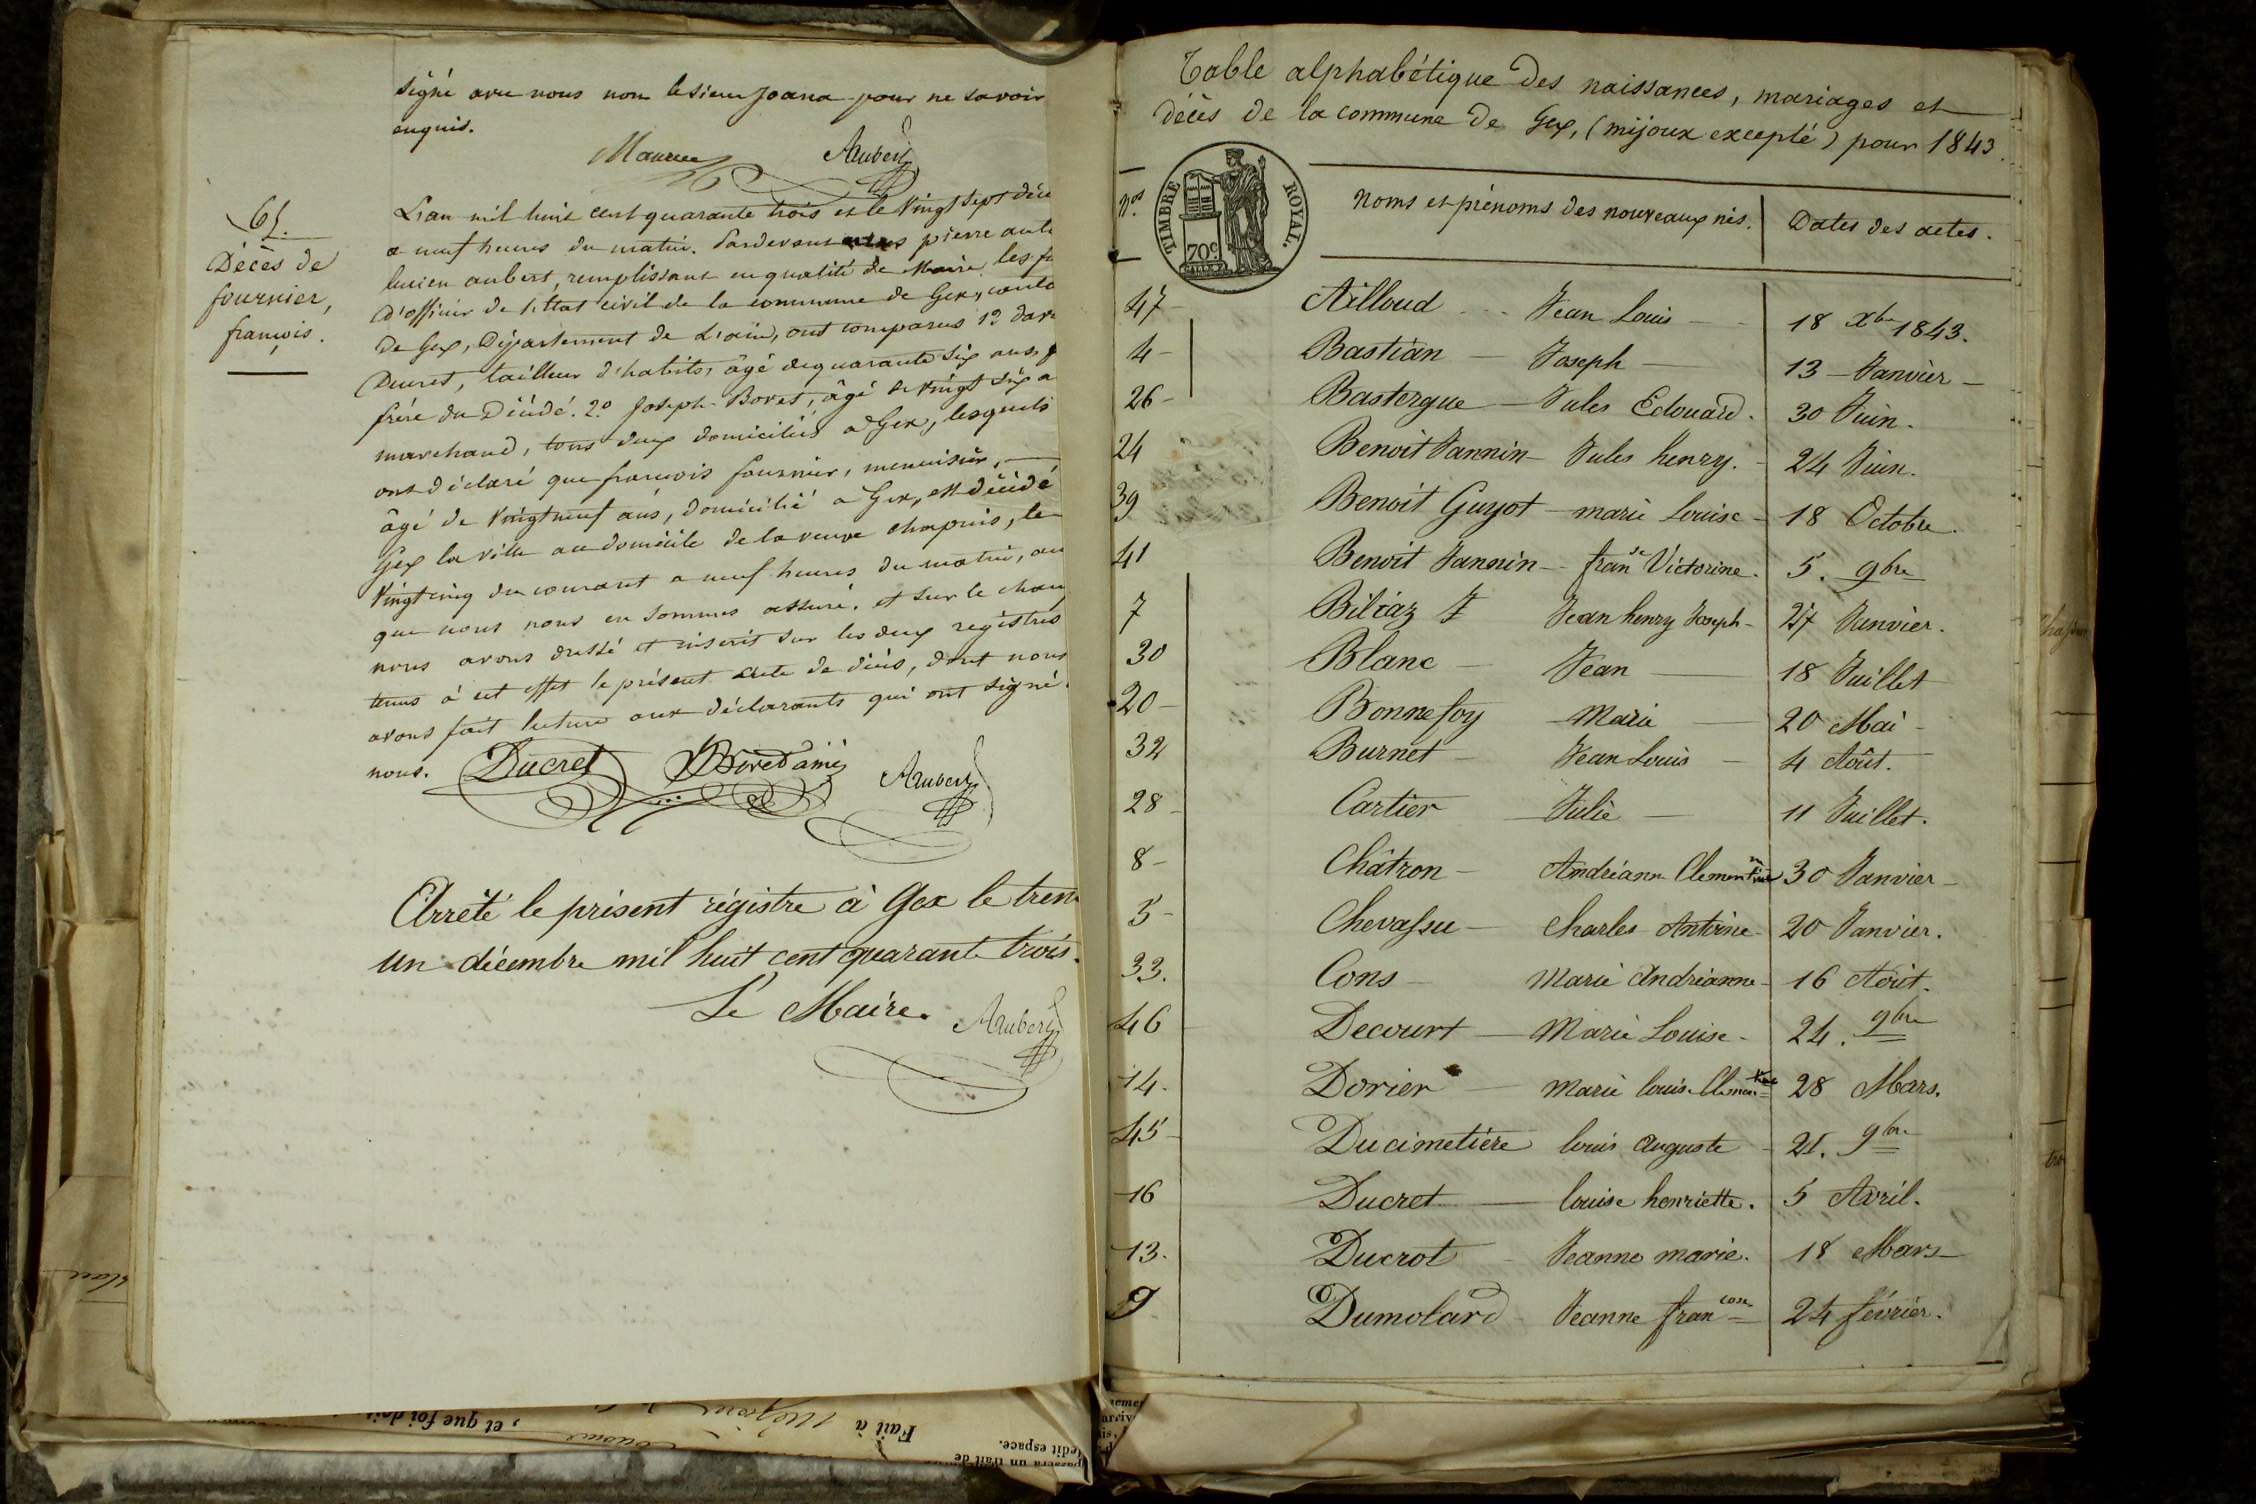 signé avec nous non le sieur Joana pour ne savoir
enquis.
Maurice Aubert
65.
Décès de
fournier,
françois.
L'an mil huit cent quarante trois et le vingt sept déce
a neuf heures du matin. Pardevant nous pierre anto
lucien aubert, remplissant en qualité de Maire les fo
d'officier de l'état civil de la commune de Gex, canto
de Gex, Département de L'ain, ont comparus 1°
Ducret, tailleur d'habits, âgé de quarante six ans,
frère du Décédé. 2° Joseph Bovet, âgé de vingt six a
marchand, tous deux domiciliés a Gex, lesquels
ont déclaré que françois fournier, menuisier,
âgé de vingt neuf ans, domicilié a Gex, est décédé
Gex la ville au domicile de la veuve chapuis, le
vingt cinq du courant a neuf heures du matin, au
que nous nous en sommes assuré. et sur le cham
nous avons dressé et inscrit sur les deux registres
tenus à cet effet le présent acte de décès, dont nous
avons fait lecture aux déclarants qui ont signé
nous. Ducret Aubert
Arrêté le présent régistre à Gex le tren
un décembre mil huit cent quarante trois.
Le Maire. Aubert
Table alphabétique des naissances, mariages et
décès de la commune de Gex, (mijoux excepté) pour 1843.
TIMBRE ROYAL.
70c
Nos Noms et prénoms des nouveaux nés. Dates des actes.
47 Ailloud Jean Louis 18 Xbre 1843.
4 Bastian Joseph 13 Janvier
26 Bastergue Jules Edouard. 30 Juin.
24 Benoit Jannin Jules henry. 24 Juin.
39 Benoit Guyot marie Louise 18 Octobre.
41 Benoit Jannin franse Victorine. 5. 9bre
7 Biliaz J Jean henry Joseph 27 Janvier.
30 Blanc Jean 18 Juillet
20 Bonnefoy Marie 20 Mai
32 Burnet Jean Louis 4 Août.
28 Cartier Julie 11 Juillet.
8 Châtron Andrianne Clementine 30 Janvier
5 Chevassu Charles Antoine 20 Janvier.
33. Cons Marie Andrianne 16 Août.
46 Decourt Marie Louise 24. 9bre
14. Dorier Marie louise Clementine 28 Mars.
45 Ducimetière louis auguste 21. 9bre
16 Ducret louise henriette. 5 Avril.
13. Ducrot Jeanne marie. 18 Mars
9 Dumolard Jeanne françoise 24 février.
Fait à
, et que foi doit
passera un trait de
ledit espace.